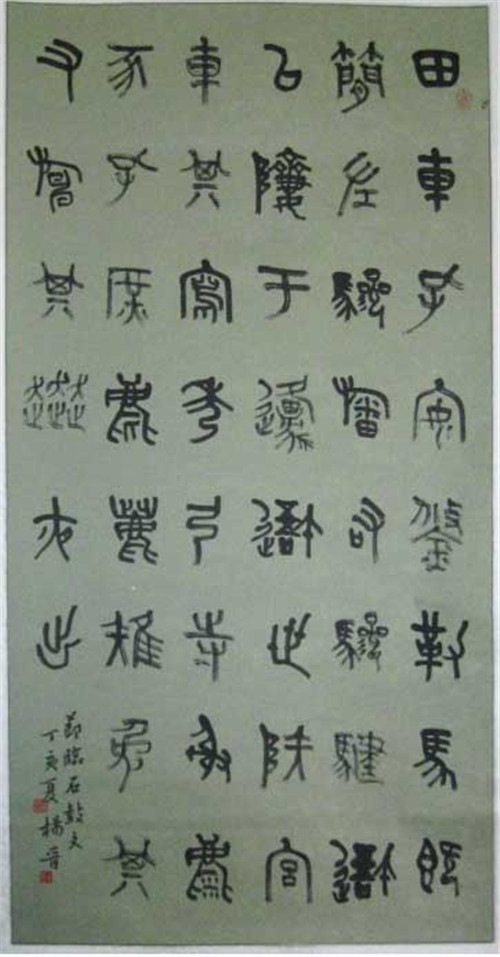 田車孔安鋚勒馬既
簡左驂旛右驂騝䢐
以隮于邍䢐止陝宮
車其寫秀弓寺射麋
豕孔庶麀鹿雉兔其
又旃其奔夜出
節臨石鼓文
丁亥夏楊晋